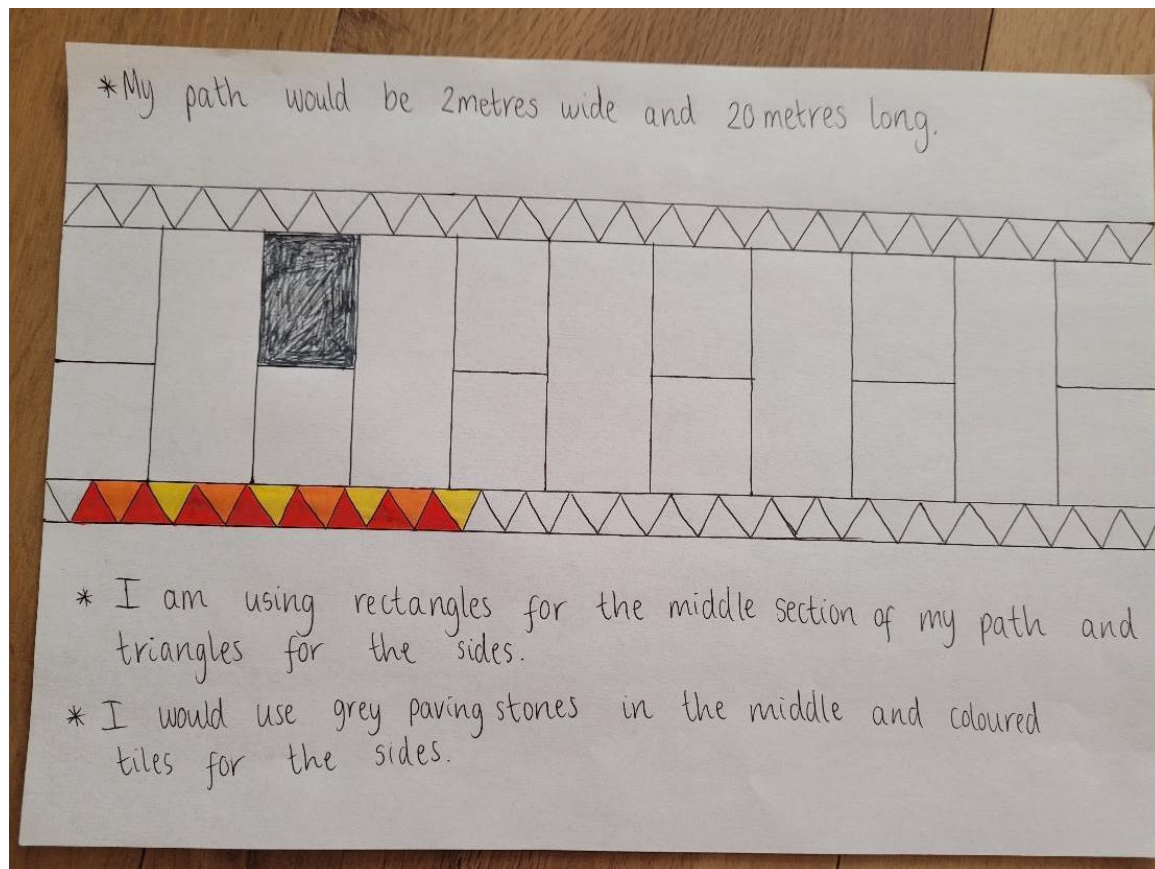 *My path would be 2metres wide and 20 metres long.
* I am using rectangles for the middle section of my path and
triangles for the sides.
* I would use grey paving stones in the middle and coloured
tiles for the sides.